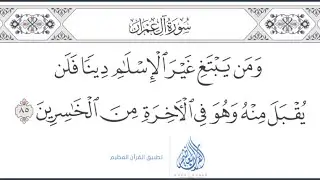 سُورَةُ آلِ عِمْرَانَ
وَمَن يَبْتَغِ غَيْرَ ٱلْإِسْلَٰمِ دِينًا فَلَن
يُقْبَلَ مِنْهُ وَهُوَ فِى ٱلْءَاخِرَةِ مِنَ ٱلْخَٰسِرِينَ ٨٥
تطبيق القرآن العظيم